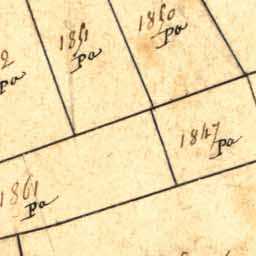 1850
pa
1851
pa
2
pa
1847
pa
1861
pa